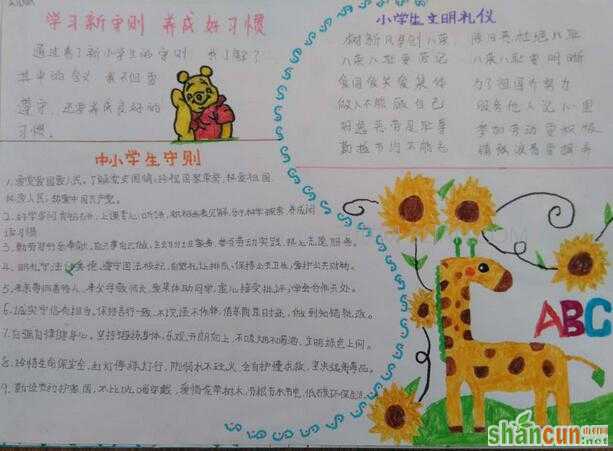 学习新守则 养成好习惯
通过看了新小学生的守则 我了解了
其中的含义 我不但要
遵守,还要养成良好的
习惯。
小学生文明礼仪
树新风
八荣八耻要
爱国爱
做人不能
勤俭节约不能忘
八荣八耻要明晰
为了祖国齐努力
服务他人记心里
参加劳动要积极
中小学生守则
1、爱党爱国爱人民。了解党史国情,珍视国家荣誉,热爱祖国
热爱人民,热爱中国共产党。
2、好学多问肯钻研。上课专心听讲,积极发表见解,乐于科学探索,养成阅
读习惯
3、勤劳笃行乐奉献。自己事自己做,主动分担家务,参与劳动实践,热心志愿服务。
4、明礼守法讲美德。遵守国法校纪,自觉礼让排队,保持公共卫生,爱护公共财物。
5、孝亲尊师善待人。孝父母敬师长,爱集体助同学,虚心接受批评,学会合作共处。
6、诚实守信有担当。保持言行一致,不说谎不作弊,借东西及时还,做到知错就改。
7、自强自律健身心。坚持锻炼身体,乐观开朗向上,不吸烟不喝酒,文明绿色上网。
8、珍惜生命保安全。红灯停绿灯行,防溺水不玩火,会自护懂求救,坚决远离毒品。
9、勤俭节约护家园。不比吃喝穿戴,爱惜花草树木,节粮节水节电,低碳环保生活。
ABC
shancun
.net